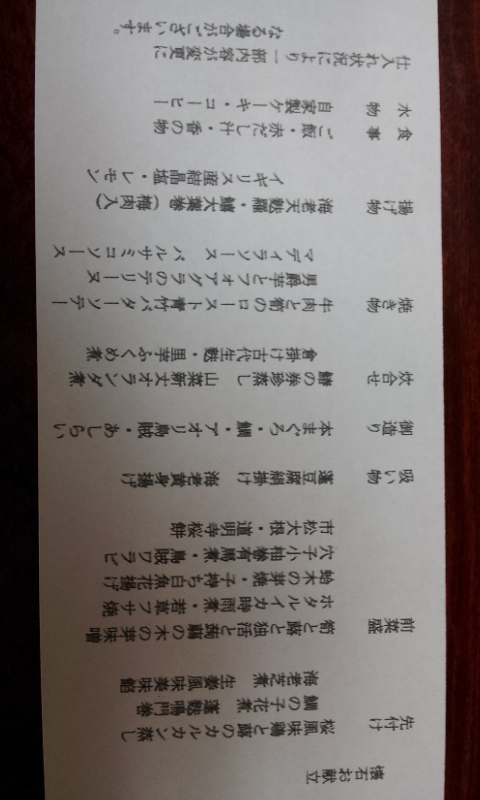 懐石お献立
先付け 桜風味鶏と蕗のカルカン蒸し
鯛の子花煮 蓬麩鳴門巻
海老芝煮 生姜風味美味餡
前菜盛 筍と蕗と独活と蒟蒻の木の芽味噌
ホタルイカ時雨煮・若草フサ焼
蛤木の芽焼・子持ち白魚花揚げ
穴子小袖巻有馬煮・烏賊ワラビ
市松大根・道明寺桜餅
吸い物 蓬豆腐絹掛け 海老黄身揚げ
御造り 本まぐろ・鯛・アオリ烏賊・あしらい
炊合せ 鰆の券珍蒸し 山菜新丈オランダ煮
倉掛け古代生麩・里芋ふくめ煮
焼き物 牛肉と筍のロースト青竹バターソテー
男爵芋とフォアグラのテリーヌ
マディラソース バルサミコソース
揚げ物 海老天麩羅・鯛大葉巻(梅肉入)
イギリス産結晶塩・レモン
食事 ご飯・赤だし汁・香の物
水物 自家製ケーキ・コーヒー
仕入れ状況により一部内容が変更に
なる場合がございます。